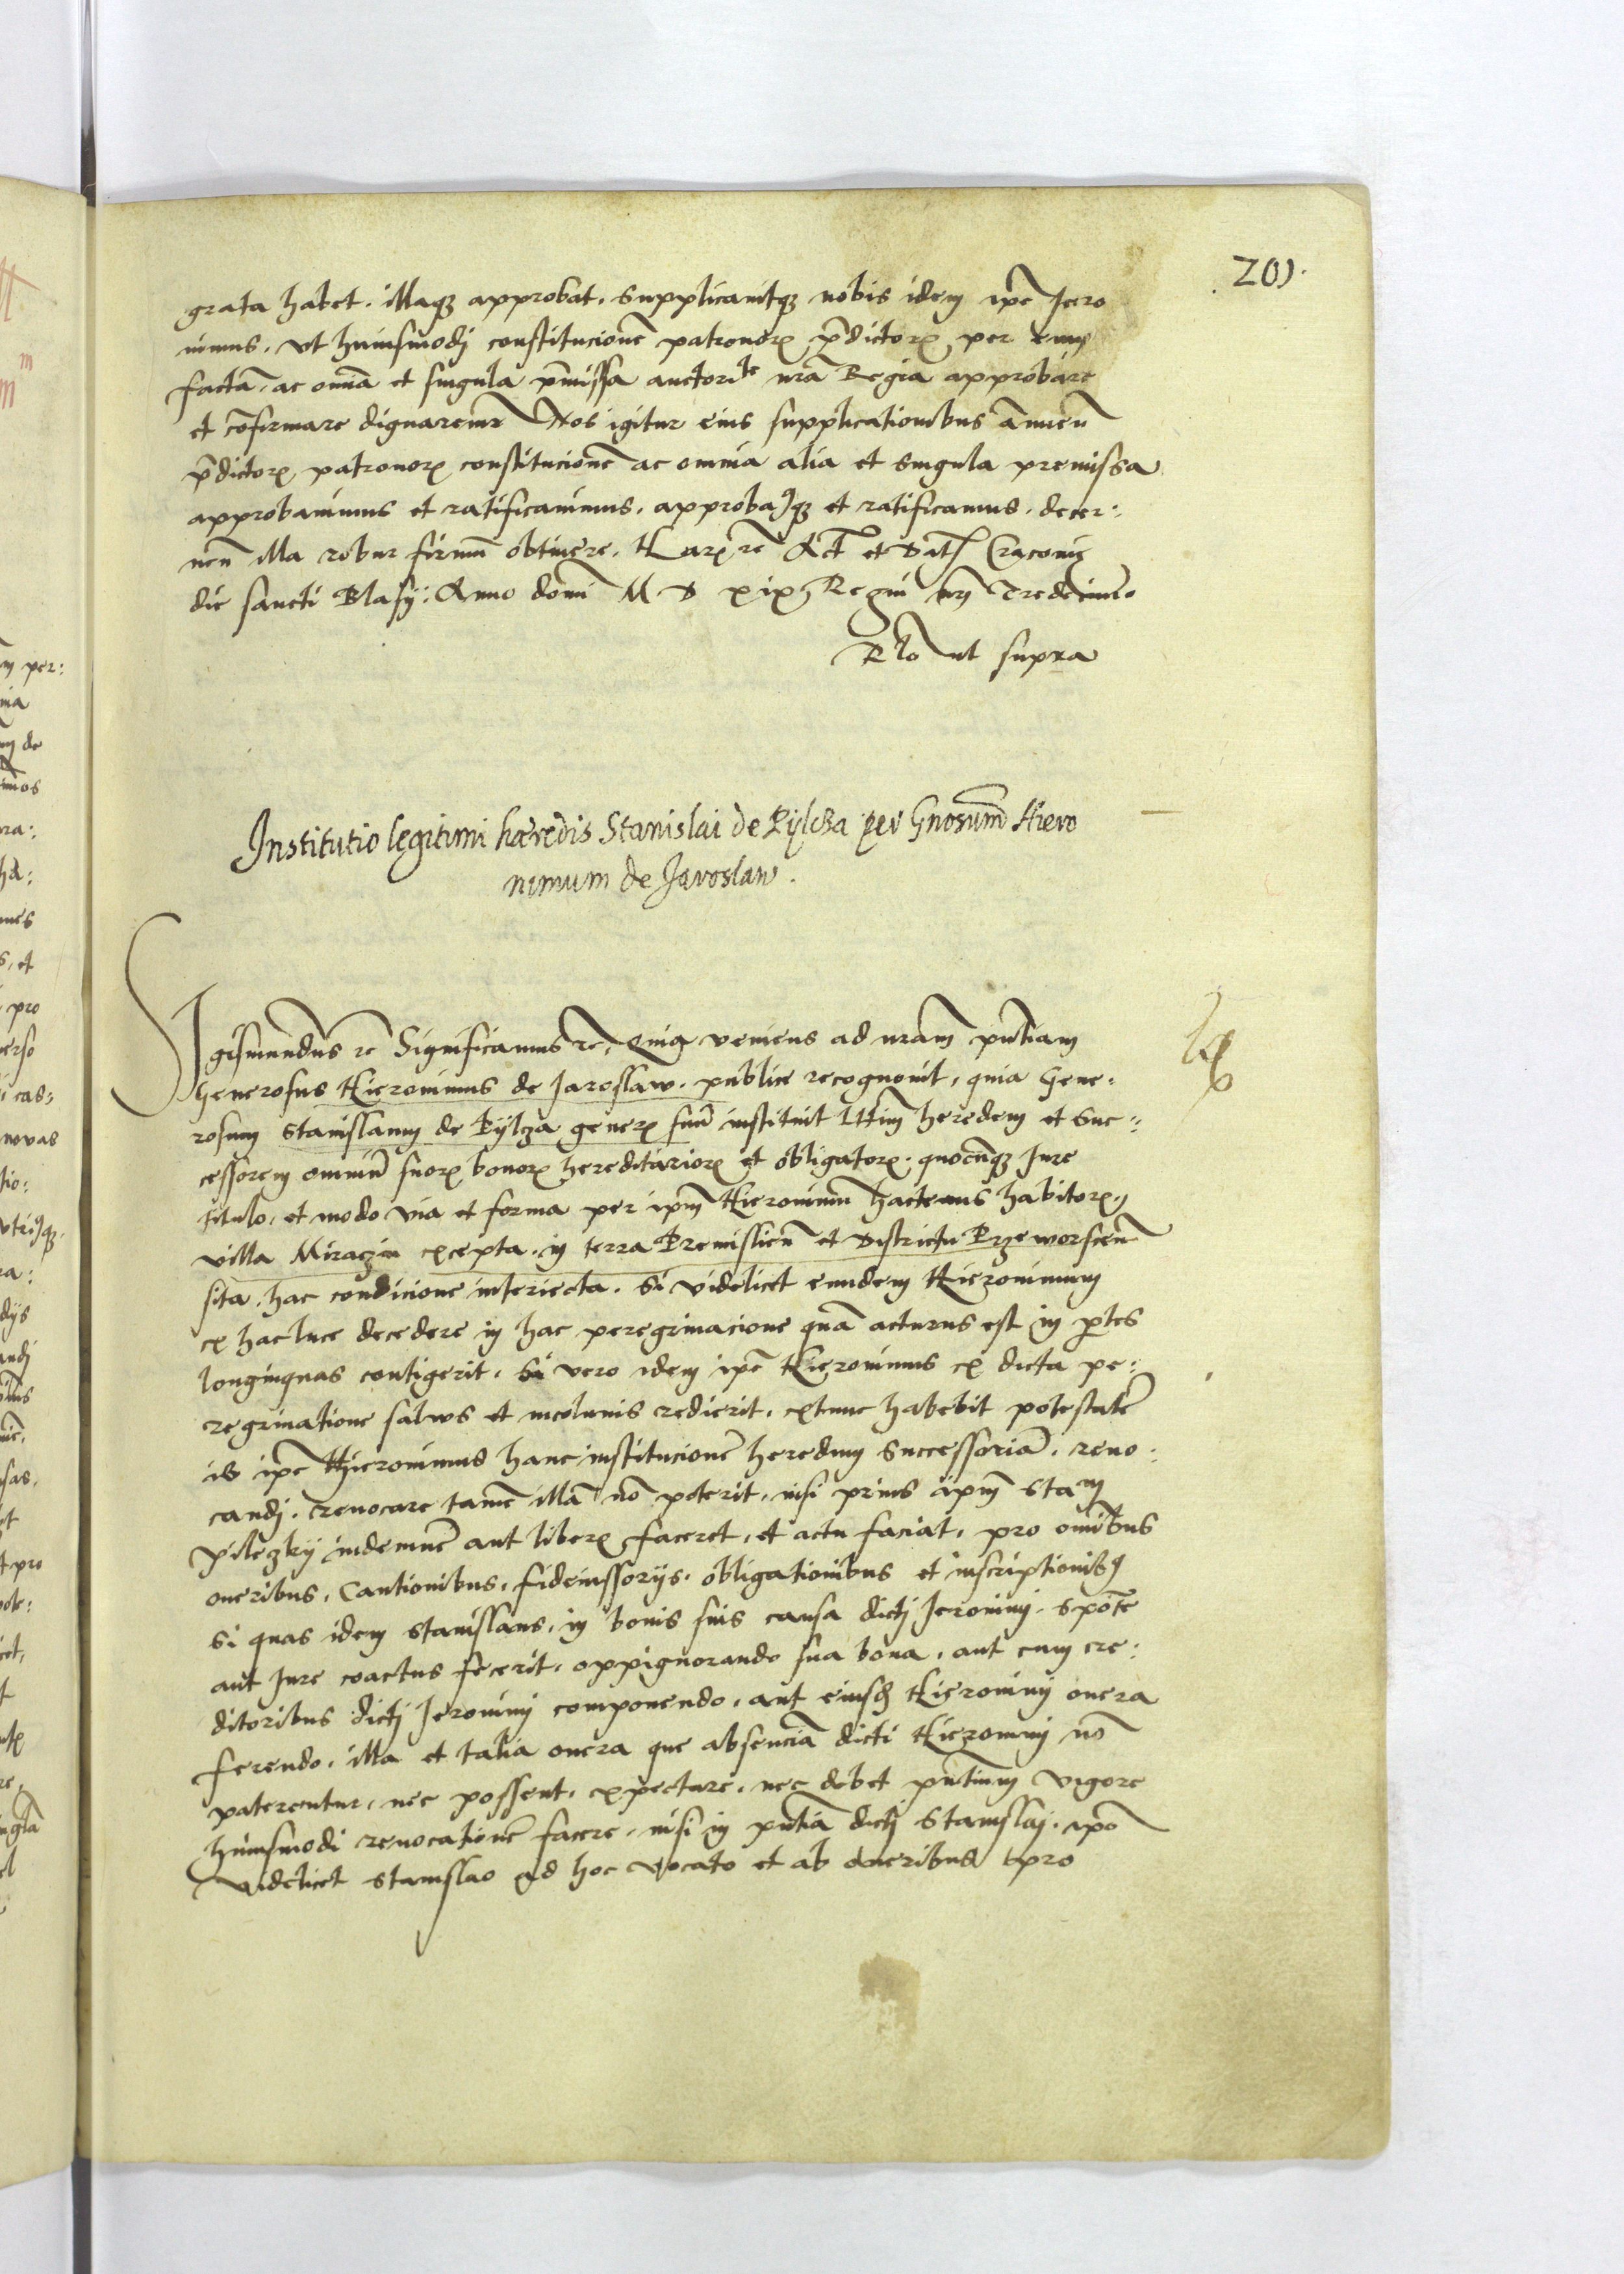 201.
grata habet. illaqꝫ approbat. Supplicauitqꝫ nobis idem ip̄e Jero
nimus. Vt huiusmodj constitucionē patronorꝫ p̄dictorꝫ per eum
factā. ac omnia et singula p̄missa auctorite nrā Regia approbare
et cōfirmare dignaremur Nos igitur eius supplicationibus ānuen̄
p̄dictorꝫ patronorꝫ constitucionē ac omnia alia et singula premissa
approbauimus et ratificauimus. approbaꝫqꝫ et ratificamus. decer:
nen̄ illa robur firmū obtinere. Harꝫ rc̄ Act̄ et Dat̄ Cracouię
die sancti Blasij. Anno domī M D xix, Regnī nrj Tredecimo
Rlō ut supra
Institutio legitimi hæredis Stanislai de Pylcza per Gnosum̄ Hiero
nimum de Jaroslaw.
Sigismundus rc̄ Significamus rc̄, Quia veniens ad nram̄ pn̄tiam
Generosus Hieronimus de Jaroslaw. publice recognouit, quia Gene:
rosum Stanislaum de Pylcza generꝫ suū instituit Lttim̄ heredem et Suc:
cessorem omniū suorꝫ bonorꝫ hereditariorꝫ et obligatorꝫ. quocūqꝫ Jure
titulo, et modo via et forma per ipm̄ Hieronimū hactenus habitorꝫ,
villa Miraczin excepta. in terra Premislien̄ et Districtu Przeworscen̄
sita. hac condicione interiecta. Si videlicet eundem Hieronimum
ex hac luce decedere in hac peregrinacione quā acturus est in p̄tes
longinquas contigerit. Si vero idem ip̄e Hieronimus ex dicta pe:
regrinatione saluus et incolumis redierit. extunc habebit potestatē
is ip̄e Hieronimus hanc institucionē heredum Successoriā. reuo:
candj. reuocare tamē illā nō poterit. nisi prius ipm̄ Stam
Pileczky indemnē aut liberꝫ faceret, et actu faciat, pro omībus
oneribus, Cautionibus, fideiussorijs, obligationibus et inscriptionibꝫ
Si quas idem Stanislaus, in bonis suis causa dictj Jeronimj. Spōte
aut Jure coactus fecerit, oppignorando sua bona, aut cum cre:
ditoribus dictj Jeronimj componendo, aut eiusdꝫ Hieronimj onera
ferendo. illa et talia onera que absenciā dicti Hieronimj nō
paterentur, nec possent, expectare. nec debet pn̄tium vigore
huiusmodi reuocationē facere. nisi in pn̄tia dictj Stanislaj. ipō
videlicet Stanislao ad hoc vocato et ab oneribus pro